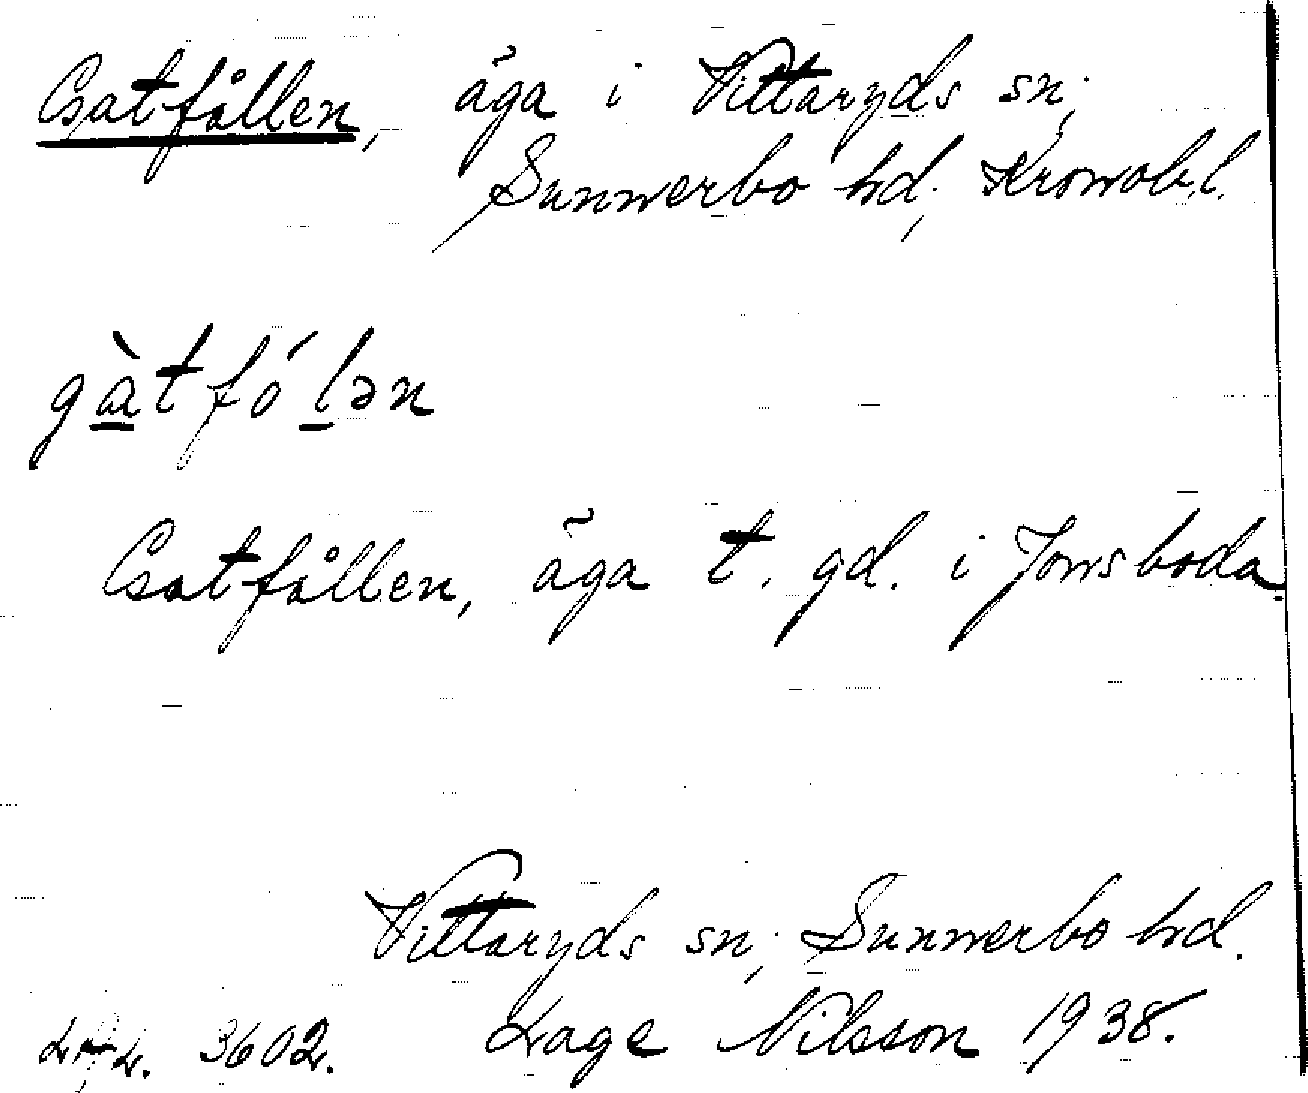 Gatfållen, äga i Vittaryds sn;
Sunnerbo hd, Kronob.l.
gàtfó lən
Gatfållen, äga t. gd. i Jonsboda
Vittaryds sn; Sunnerbo hd.
3602. Lage Nilsson 1938.